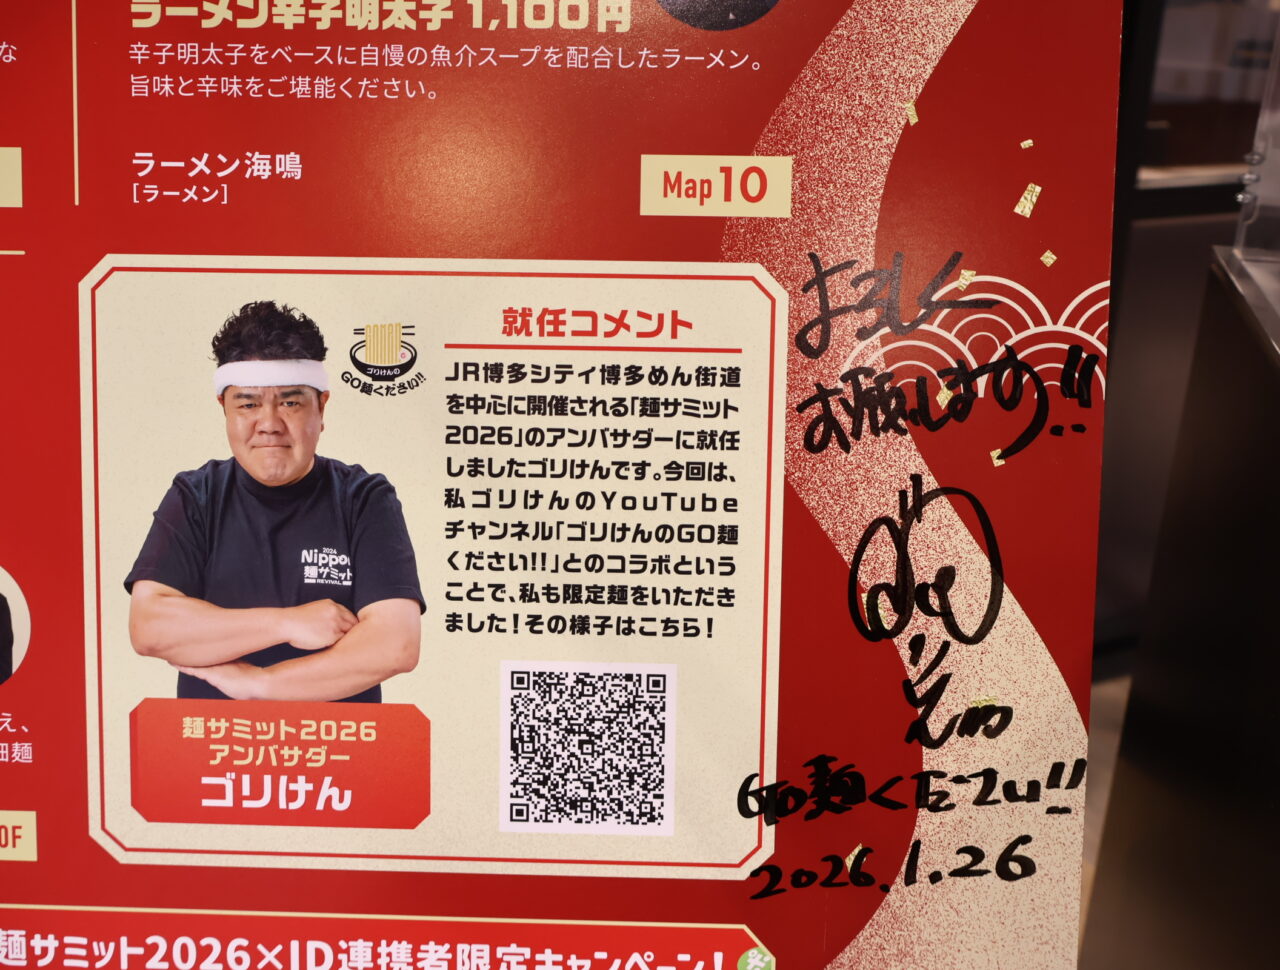 ラーメン辛子明太子 1,100円
辛子明太子をベースに自慢の魚介スープを配合したラーメン。
旨味と辛味をご堪能ください。
ラーメン海鳴
[ラーメン]
Map 10
就任コメント
JR博多シティ博多めん街道
を中心に開催される「麺サミット
2026」のアンバサダーに就任
しましたゴリけんです。今回は、
私ゴリけんのYouTube
チャンネル「ゴリけんのGO麺
ください!!」とのコラボという
ことで、私も限定麺をいただき
ました!その様子はこちら!
GOMEN
ゴリけんの
GO麺ください!!
2024
Nippon
麺サミット
REVIVAL
麺サミット2026
アンバサダー
ゴリけん
よろしく
お願いします!!
GO麺ください!!
2026.1.26
な
え、
細麺
0F
麺サミット2026×JD連携者限定キャンペーン!